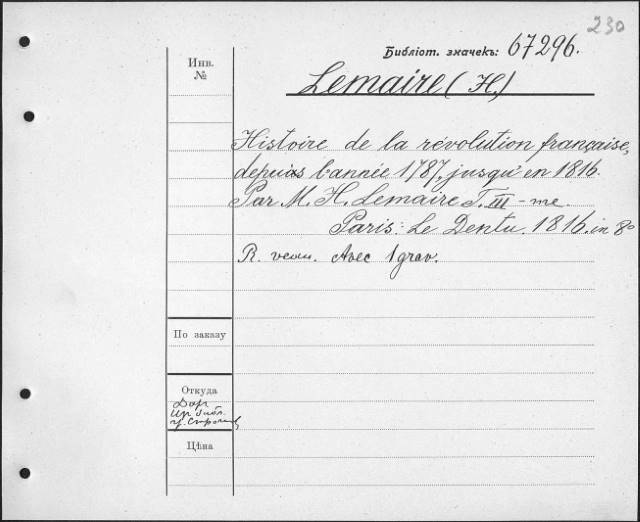 230
Библіот. значекъ: 67296.
Инв.
№
Lemaire (H.)
Histoire de la révolution française,
depuis l'année 1787, jusqu'en 1816.
Par M. H. Lemaire T. III-me.
Paris: Le Dentu. 1816. in 8º
R. veau. Avec 1 grav.
По заказу
Откуда
Дар
Цѣна